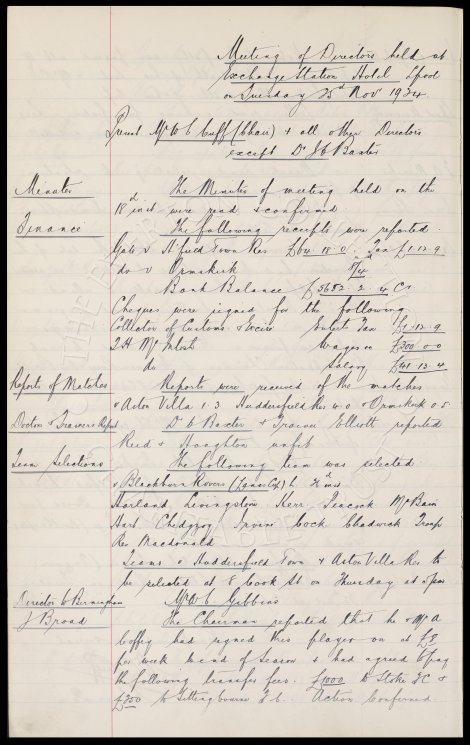 Meeting of Directors held at
Exchange Station Hotel L'pool
on Tuesday 25th Nov 1924.
Present Mr W C Cuff (Chair) & all other Directors
except Dr J C Baxter
Minutes The Minutes of meeting held on the
18th inst were read & confirmed
Finance The following receipts were reported.
Gate v H'field Town Res £64.18.0. Tax £1.12.9
do v Ormskirk 5/4
Bank Balance £5682.2.4 Cr
Cheques were signed for the following
Collector of Customs & Excise Entert Tax £1.12.9
T H McIntosh Wages £300.0.0
do Salary £41.13.4
Reports of Matches Reports were received of the matches
v Aston Villa 1.3 Huddersfield Res 4.0 v Ormskirk 0.5.
Doctor & Trainers Report Dr Baxter & Trainer Elliott reported
Reid & Houghton unfit
Team Selections The following team was selected
v Blackburn Rovers (Lancs Cup) h. inst
Harland Livingstone Kerr Peacock McBain
Hart Chedgzoy Irvine Cock Chadwick Troup
Res Macdonald
Teams v Huddersfield Town & Aston Villa Res to
be selected at 8 Cook St on Thursday at 5 pm
Director to Birmingham Mr W C Gibbins
J Broad The Chairman reported that he & Mr A
Coffey had signed this player on at £8
per week to end of Season & had agreed to pay
the following transfer fees. £1000 to Stoke F.C. &
£350 to Sittingbourne F.C. Action Confirmed.